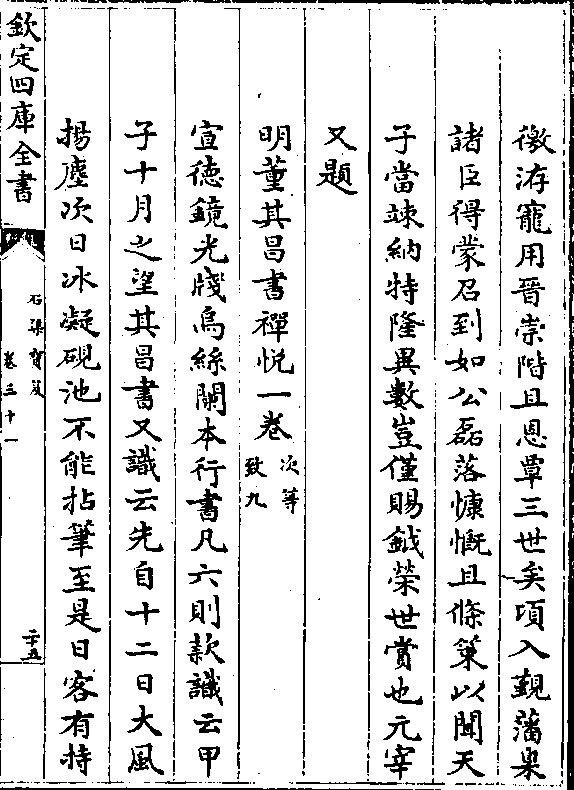 徼洊寵用晉崇階且恩覃三世矣項入覲藩臬
諸臣得蒙召到如公磊落慷慨且條箓以聞天
子當竦納特隆異數豈僅賜鉞榮世賞也元宰
又題
明董其昌書禪悦一卷次等致九
宣徳鏡光牋烏絲闌本行書凡六則款識云甲
子十月之望其昌書又識云先自十二日大風
揚塵次日冰凝硯池不能拈筆至是日客有持
欽定四庫全書
石渠寶笈
卷三十一
二十五